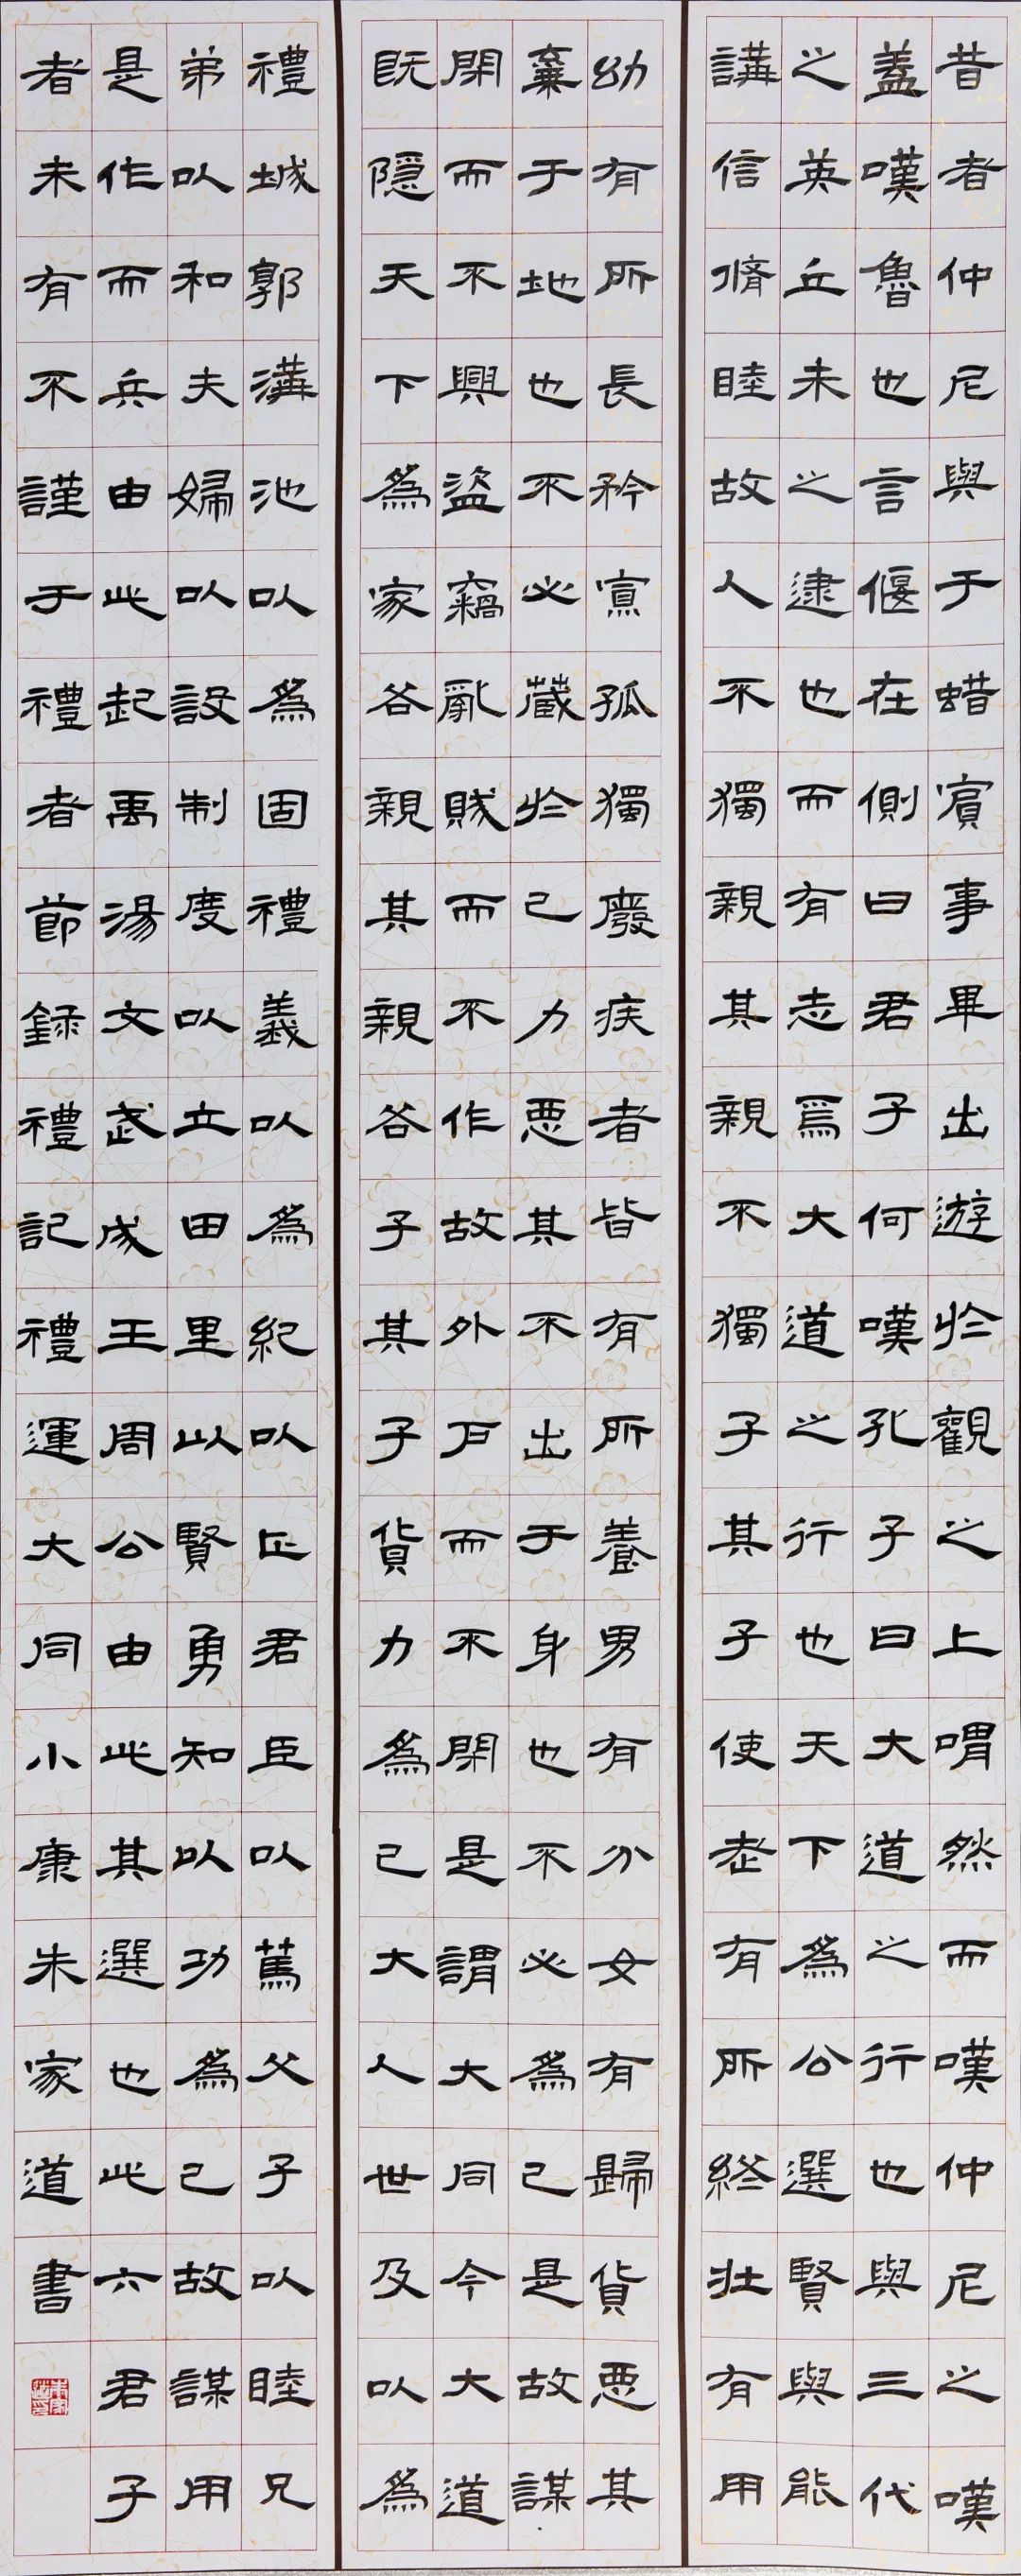 昔者仲尼與于蜡賓事畢出遊於觀之上喟然而嘆仲尼之嘆
蓋嘆魯也言偃在側曰君子何嘆孔子曰大道之行也與三代
之英丘未之逮也而有志焉大道之行也天下為公選賢與能
講信脩睦故人不獨親其親不獨子其子使老有所終壯有用
幼有所長矜寡孤獨廢疾者皆有所養男有分女有歸貨惡其
棄于地也不必藏於己力惡其不出于身也不必為己是故謀
閉而不興盜竊亂賊而不作故外戶而不閉是謂大同今大道
既隱天下為家各親其親各子其子貨力為己大人世及以為
禮城郭溝池以為固禮義以為紀以正君臣以篤父子以睦兄
弟以和夫婦以設制度以立田里以賢勇知以功為己故謀用
是作而兵由此起禹湯文武成王周公由此其選也此六君子
者未有不謹于禮者節錄禮記禮運大同小康朱家道書